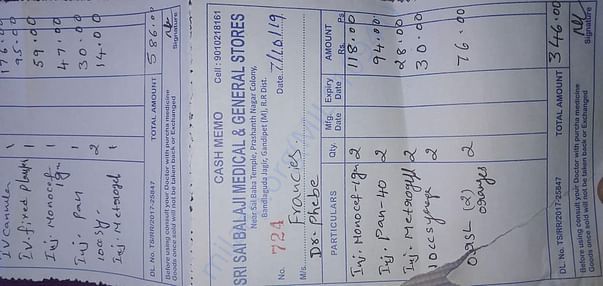 IV Cannula 1 176.00
IV. fixed 1 95.00
Inj. Monocef- 1 59.00
1gm
Inj. Pan 1 47.00
10ccsy. 2 30.00
Inj. Metrogyl 1 14.00
DL No. TS/RR/2017-25847 TOTAL AMOUNT 586.00
Before using consult your Doctor with purcha medicine
Goods once sold will not be taken back or Exchanged
Signature
CASH MEMO Cell : 9010218161
SRI SAI BALAJI MEDICAL & GENERAL STORES
Near Sai Baba Temple, Prashanth Nagar Colony,
Bandlaguda Jagir, Gandipet (M), R.R Dist.
No. 724 Date. 7/10/19
M/s. Francies.
Dr. Phebe
PARTICULARS Qty. Mfg. Date Expiry Date AMOUNT Rs. Ps
Inj. Monocef-1gm 2 118.00
Inj. Pan-40 2 94.00
Inj. Metrogyl 2 28.00
10cc syringe 2 30.00
ORSL (2) 2 76.00
oranges
DL No. TS/RR/2017-25847 TOTAL AMOUNT 346.00
Before using consult your Doctor with purcha medicine
Goods once sold will not be taken back or Exchanged
Signature